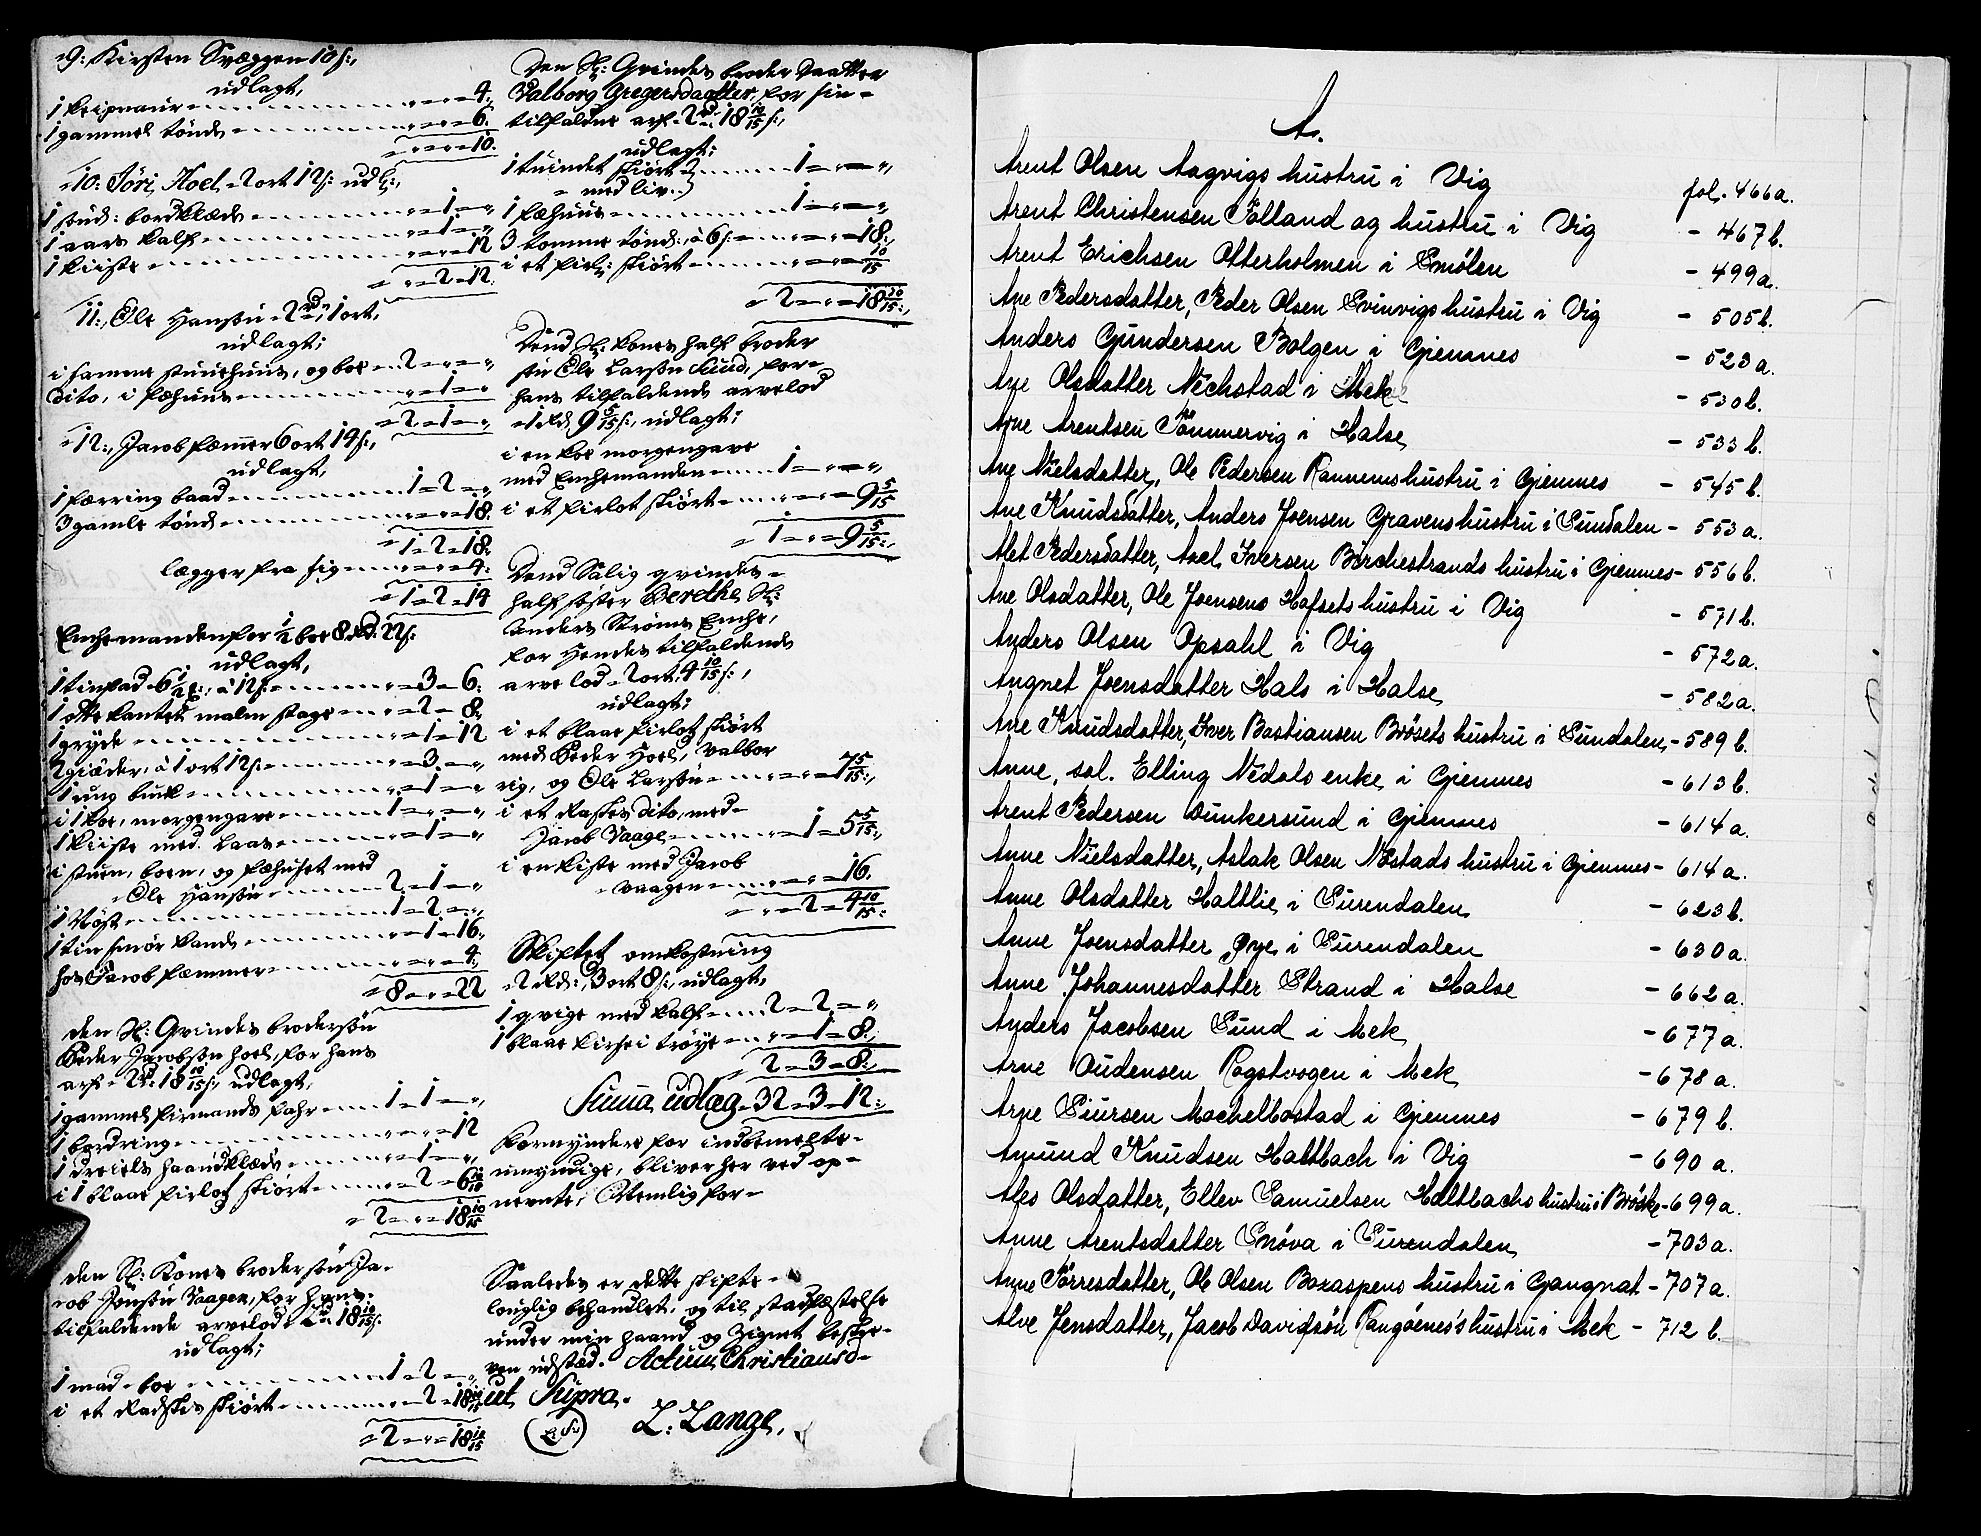 9: Kirsten Sveggen 10 s:,
udlagt,
1 gammel tønde 6.
10.
10: Jøri Hoel 2 ort 12 s: udl:,
1 bordklæde 1
1 aars kalf 1
1 kiiste 12
2 - 12
11:, Ole Hansøn 2 rd, 1 ort,
udlagt;
i samme stuehuus, og boe 2
dito, i fæhuus 1
2 - 1
12:, Jacob femmer 6 ort 14 s:,
udlagt,
1 færring baad 1 - 2
3 gamle tønd 18.
1 - 2 - 18
lægger fra sig 4:
1 - 2 - 14
Enchemanden for 1/2 boe 8 rd: 22 s:
udlagt,
1 tinfad 3 - 6.
1 otte kantet malm stage 2 - 8
1 gryde 1 - 12
2 giæder, á 1 ort 12 s: 3.
1 ung buk 1
i 1 koe, morgengave 1
1 kiiste med Laas 1
i stuen, boen, og fæhuset med
Ole Hansøn 2 - 1
1 Nøst 1 - 2
1 tin smør kande 1 - 16
hos Jacob femmer 4
8 - 22
den Sl: Qvindes brodersøn
Peder Jacobsøn Hoel, for hans
arf 2 rd: 18 10/15 s: udlagt,
1 gammel 1 - 1
1 bordring 12
1 dreiels haandklæde 1
i 1 blaae skiørt 2 - 6
2 - 18 10/15
den Sl: Kones brodersøn Ja-
cob Jonsøn Vaagen, for hans
tilfaldende arvelod 2 rd: 18 10/15 s:
udlagt;
1 mad boe 1 - 2
i et Raskes skiørt 2 - 18
2 - 18 10/15
Den Sl: Qvindes broder daatter
Valborg Gregersdaatter, for sin
tilfaldne arf 2 rd 18 10/15 s:,
udlagt;
1 tuindet skiørt
med liv 1
1 fæhuus 1
3 tomme tønd:, á 6 s: 18
i et skiørt 10/15
2 - 18 10/15
Dend Sl: kones half broder
søn Ole Larsøn Sund, for
hans tilfaldende arvelod
1 rd 9 5/15 s:, udlagt;
i en koe morgengave
med Enchemanden 1
i et skiørt 9 5/15
1 - 9 5/15
Dend Salig qvindes
half søster Berethe Sl:
Anders Strøms Enche,
for Hendes tilfaldende
arvelod 2 ort 4 10/15 s:,
udlagt;
i et blaae skiørt
med Peder Hoel, Valbor
rig, og Ole Larsøn 7 5/15
i et Raskes dito, med
Jacob Vaage 1 - 5 5/15
i en kiste med Jacob
Vaagen 16.
2 - 4 10/15
Skiftets omkostning
2 rd:, 3 ort 8 s:, udlagt,
1 qvige med kalf 2 - 2
1 blaae trøye 1 - 8
2 - 3 - 8
Suma udlæg 32 - 3 - 12:
Formyndere for indbemelte
umyndige, bliver her ved op-
nevnte; Nemlig for
Saaledes er dette skifte
louglig behandlet, og til stadfæstelse
under min haand og Zignet beskre-
ven udstæd. Actum Christiansd-
ut Supra.
(L.S)
L: Lange,
A.
Arent Olsen Aagvigs hustru i Vig fol. 466a.
Arent Christensen Tølland og hustru i Vig - 467b.
Arent Erichsen Otterholmen i Smølen - 499a.
Ane Pedersdatter, Peder Olsen Svinvigs hustru i Vig - 505b.
Anders Gundersen Bolgen i Gjemnes - 523a.
Ane Olsdatter Nechstad i Mek - 530b.
Arne Arentsen Tömmervig i Halse - 533b.
Ane Nielsdatter, Ole Pedersen Rannemshustru i Gjemnes - 545b.
Ane Knudsdatter, Anders Joensen Gravenshustru i Sundalen - 553a.
Alet Pedersdatter, Axel Iversen Birchestrands hustru i Gjemnes - 556b.
Ane Olsdatter, Ole Joensens Hafsets hustru i Vig - 571b.
Anders Olsen Opsahl i Vig - 572a.
Angnet Joensdatter Hals i Halse - 582a.
Ane Knudsdatter, Iver Bastiansen Brösets hustru i Sundalen - 589b.
Anne, sal. Elling Nedals enke i Gjemnes - 613b.
Arent Pedersen Dunkersund i Gjemnes - 614a.
Anne Nielsdatter, Aslak Olsen Næstads hustru i Gjemnes - 614a.
Anne Olsdatter Haltlie i Surendalen - 623b.
Anne Joensdatter Øye i Surendalen - 630a.
Anne Johannesdatter Strand i Halse - 662a.
Anders Jacobsen Sund i Mek - 677a.
Arne Oudensen Ragstvogen i Mek - 678a.
Arne Siursen Mochelbostad i Gjemnes - 679b.
Amund Knudsen Haltbach i Vig - 690a.
Ales Olsdatter, Ellev Samuelsen Haltbachs hustru i Bröske - 699a.
Anne Arentsdatter Snöva i Surendalen - 703a.
Anne Törresdatter, Ole Olsen Boraspens hustru i Gangnat - 707a.
Alve Jensdatter, Jacob Davidsön Rangöenes's hustru i Mek - 712b.